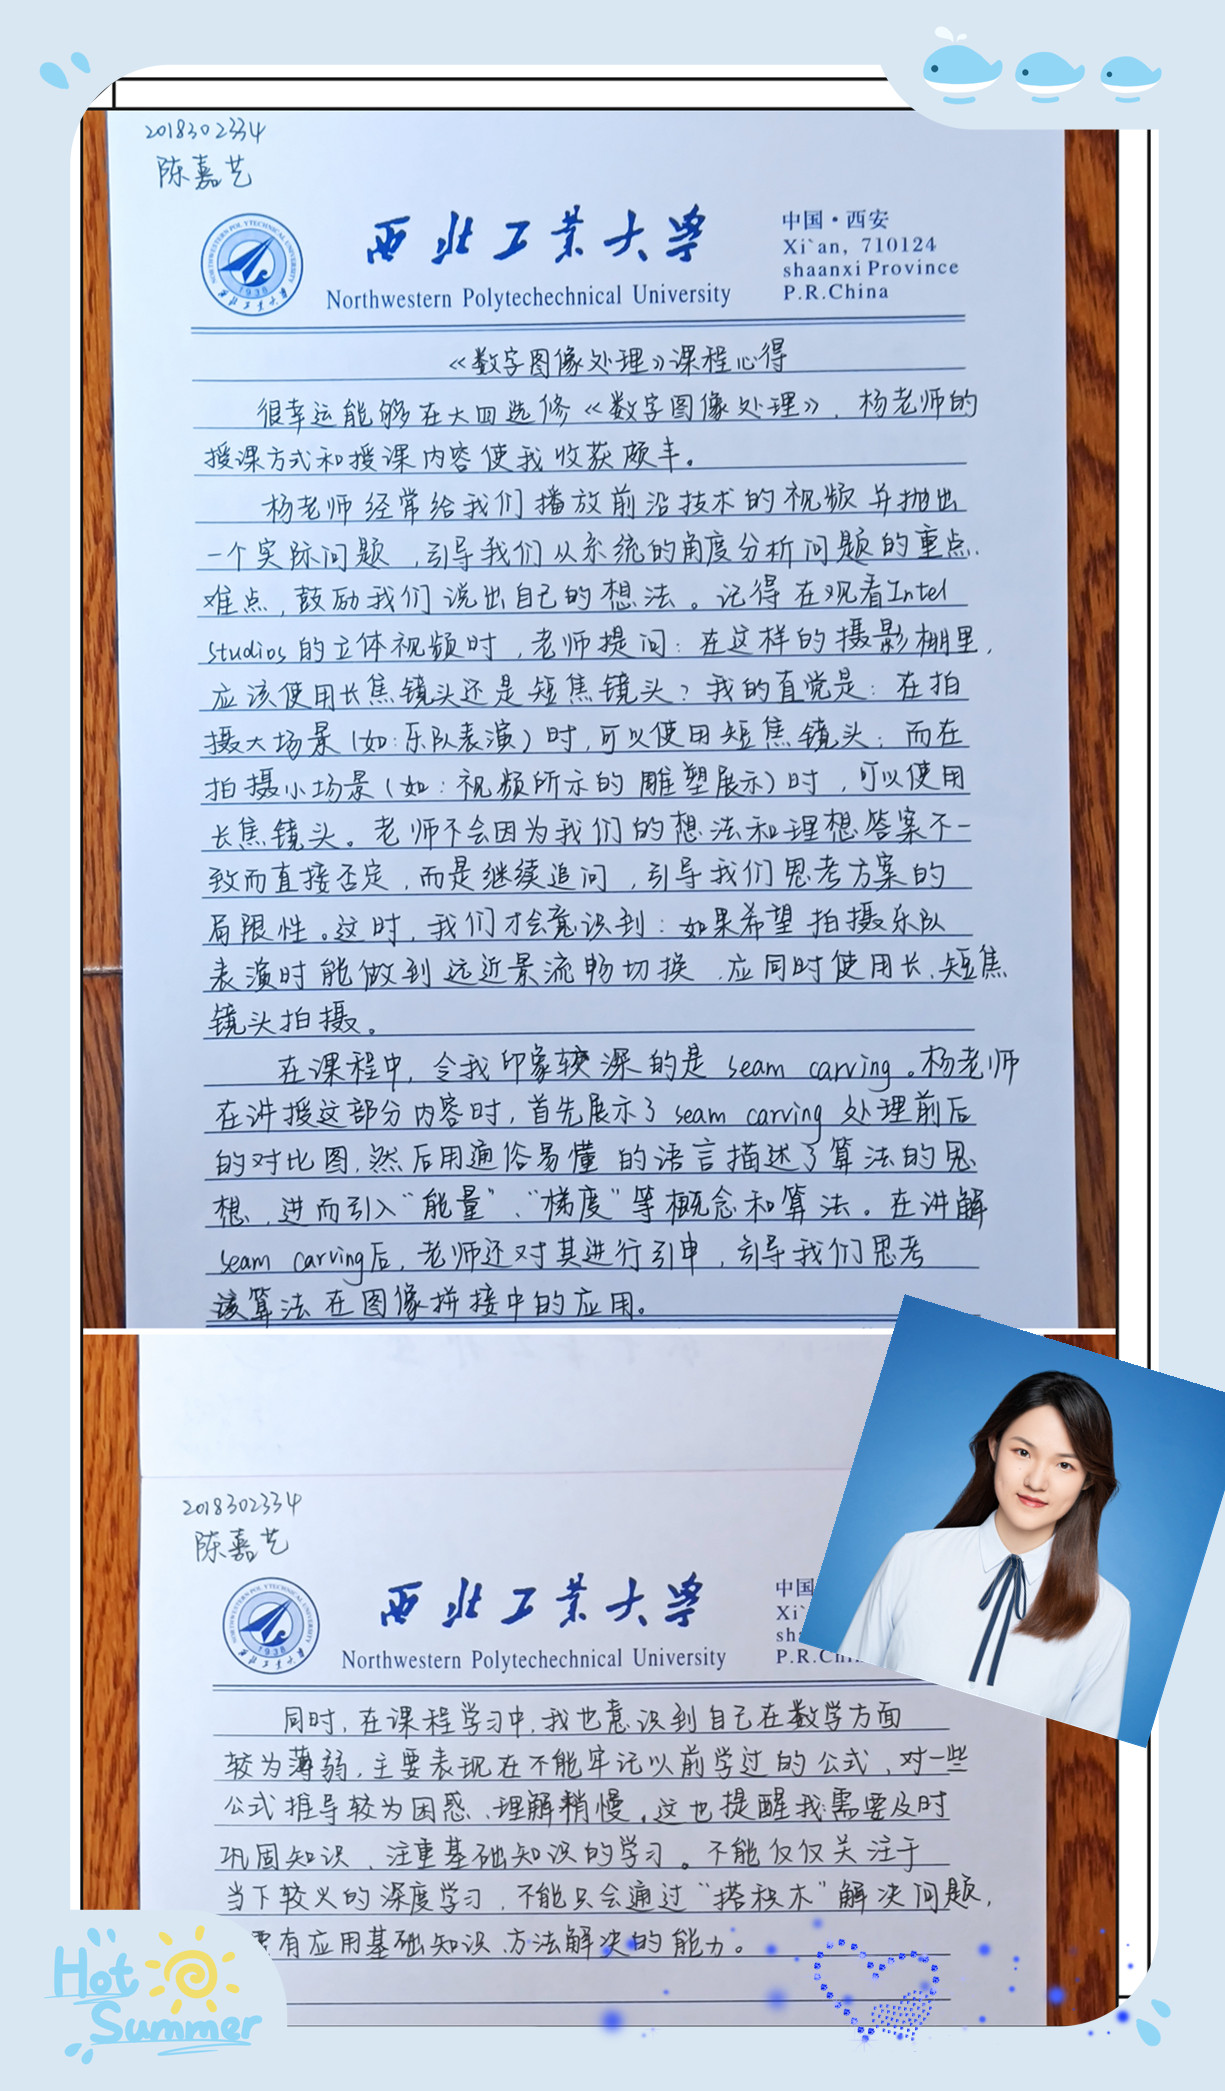 2018302334
陈嘉艺
西北工业大学
Northwestern Polytechechnical University
中国·西安
Xi`an, 710124
shaanxi Province
P.R.China
NORTHWESTERN POLYTECHNICAL UNIVERSITY
1938
西北工业大学
《数字图像处理》课程心得
很幸运能够在大四选修《数字图像处理》，杨老师的
授课方式和授课内容使我收获颇丰。
杨老师经常给我们播放前沿技术的视频并抛出
一个实际问题，引导我们从系统的角度分析问题的重点、
难点，鼓励我们说出自己的想法。记得在观看Intel
studios的立体视频时，老师提问：在这样的摄影棚里，
应该使用长焦镜头还是短焦镜头？我的直觉是：在拍
摄大场景（如：乐队表演）时，可以使用短焦镜头；而在
拍摄小场景（如：视频所示的雕塑展示）时，可以使用
长焦镜头。老师不会因为我们的想法和理想答案不一
致而直接否定，而是继续追问，引导我们思考方案的
局限性。这时，我们才会意识到：如果希望拍摄乐队
表演时能做到远近景流畅切换，应同时使用长、短焦
镜头拍摄。
在课程中，令我印象较深的是seam carving。杨老师
在讲授这部分内容时，首先展示了seam carving处理前后
的对比图，然后用通俗易懂的语言描述了算法的思
想，进而引入“能量”、“梯度”等概念和算法。在讲解
seam carving后，老师还对其进行引申，引导我们思考
该算法在图像拼接中的应用。
2018302334
陈嘉艺
西北工业大学
Northwestern Polytechechnical University
中国
Xi`
sha
P.R.Chi
NORTHWESTERN POLYTECHNICAL UNIVERSITY
1938
西北工业大学
同时，在课程学习中，我也意识到自己在数学方面
较为薄弱，主要表现在不能牢记以前学过的公式，对一些
公式推导较为困惑、理解稍慢，这也提醒我需要及时
巩固知识、注重基础知识的学习。不能仅仅关注于
当下较火的深度学习，不能只会通过“搭积木”解决问题，
要有应用基础知识、方法解决的能力。
Hot
Summer